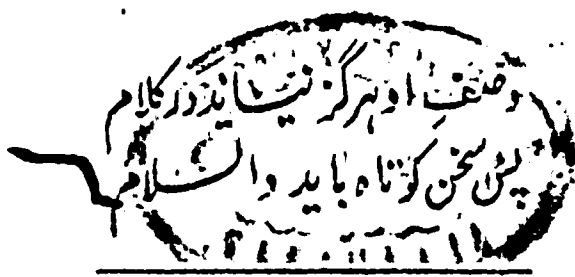 وصف او هرگز نیاید در کلام
پس سخن کوتاه باید والسلام